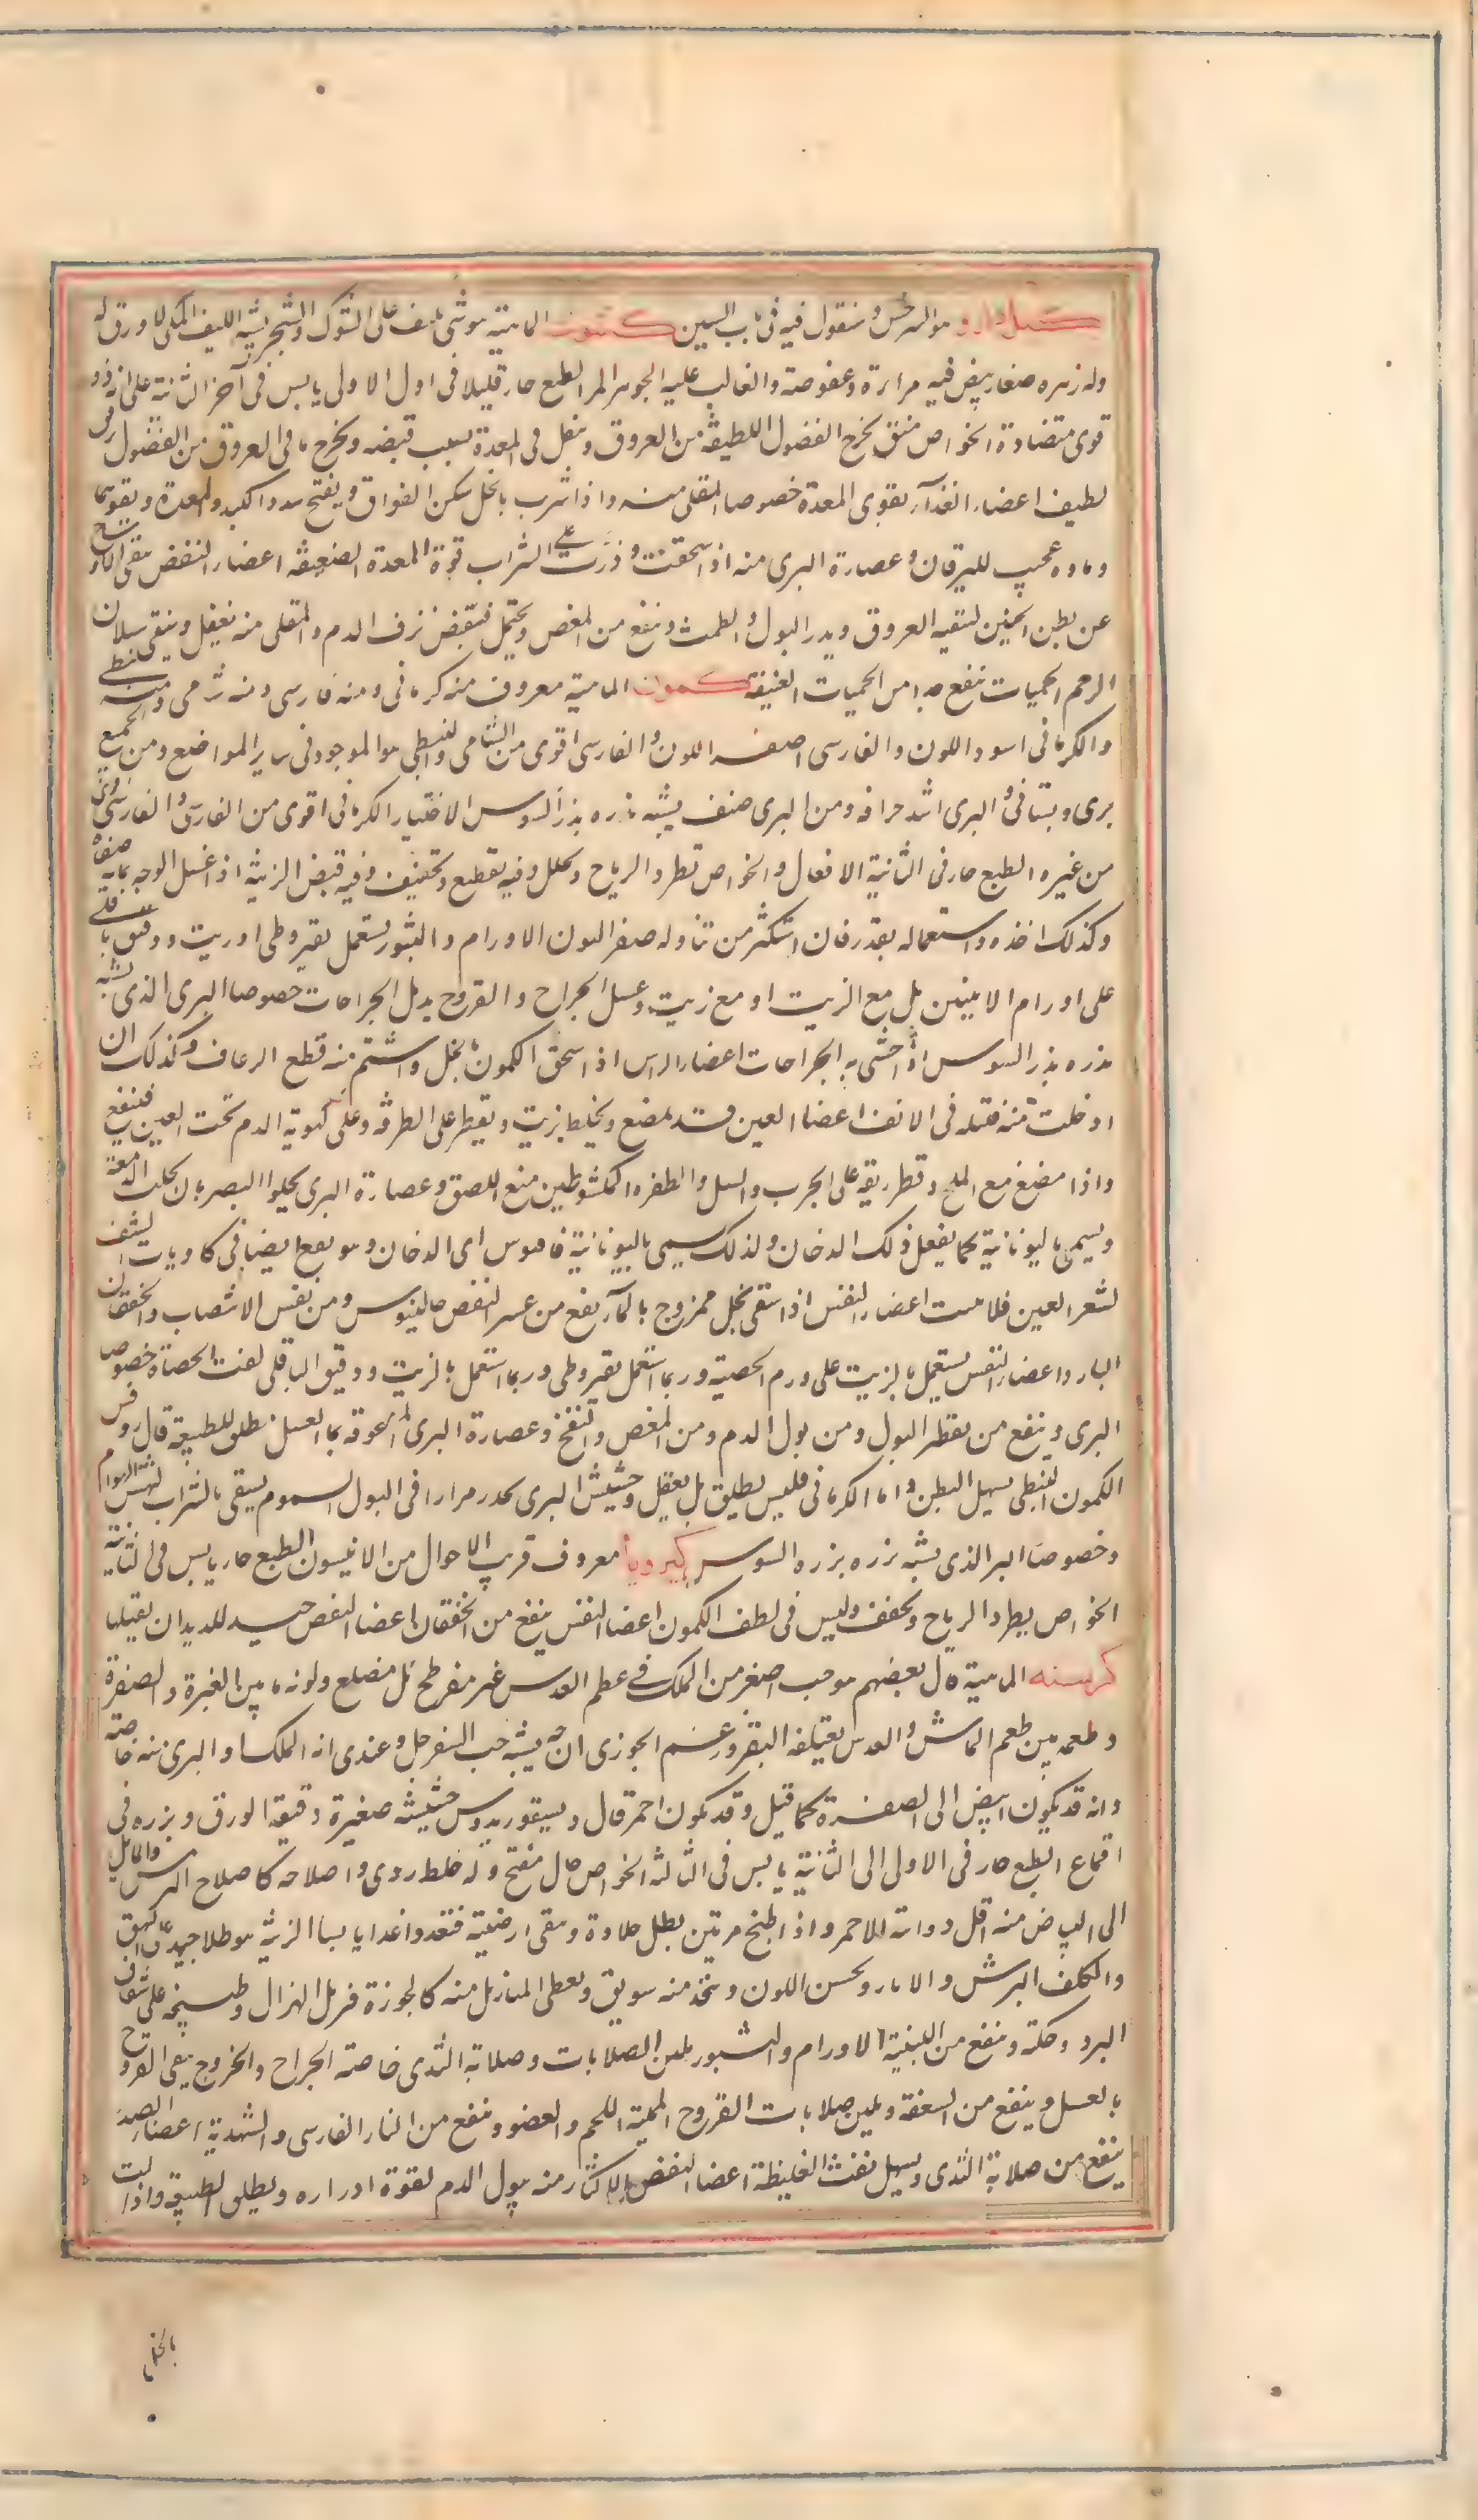 كيل دارو هو السرخس وسنقول فيه فى باب السين كشوث الماهية هو شى يلتف على الشوك والشجر يشبه الليف المكى لا ورق له
وله زهره صغار بيض فيه مرارة وعفوصة والغالب عليه الجوهر المر الطبع حار قليلا فى اول الاولى يابس فى آخر الثانية على انه ذو
قوى متضادة الخواص منق يخرج الفضول اللطيفة من العروق ويثقل فى المعدة بسبب قبضه ويخرج ما فى العروق من الفضول
لطيف اعضاء الغذاء يقوى المعدة خصوصا المقلى منه واذا شرب بالخل سكن الفواق ويفتح سدد الكبد والمعدة ويقويهما
وماوه عجيب لليرقان وعصارة البرى منه اذا سحقت وذرت على الشراب قوة المعدة الضعيفة اعضاء النفض ينقى الاوساخ
عن بطن الجنين لتنقيه العروق ويدر البول والطمث وينفع من المغص ويحتمل فينقبض نزف الدم والمقلى منه يعقل وينقى سيلان
الرحم الحميات ينفع جدا من الحميات العتيقة كمون الماهية معروف منه كرمانى ومنه فارسى ومنه شامى ومنه نبطى
والكرمانى اسود اللون والفارسى اصفر اللون والفارسى اقوى من الشامى والنبطى هو الموجود فى ساير المواضع ومن الجميع
برى وبستانى والبرى اشد حرافه ومن البرى صنف يشبه بزره بذر السوس الاختيار الكرمانى اقوى من الفارسى والفارسى اقوى
من غيره الطبع حار فى الثانية الافعال والخواص تطرد الرياح ويحلل وفيه تقطيع وتجفيف وفيه قبض الزينة اذا غسل الوجه بمائه صفاه
وكذلك اخذه واستعماله بقدر فان استكثر من تناوله صفر اللون الاورام والبثور يستعمل بقيروطى او زيت ودقيق باقلى
على اورام الانثيين بل مع الزيت او مع زيت وعسل الجراح والقروح يدمل الجراحات خصوصا البرى الذى يشبه
بذره بذر السوس اذا حشى به الجراحات اعضاء الراس اذا سحق الكمون بالخل واشتم منه قطع الرعاف وكذلك ان
ادخلت منه فتيله فى الانف اعضا العين قد يمضغ ويخلط بزيت ويقطر على الطرفه وعلى كهوبة الدم تحت العين فينفع
واذا مضغ مع الملح وقطر ريقه على الجرب والسبل والظفره المكشوطين منع اللصق وعصارة البرى يجلوا البصر بان يجلب الدمعة
ويسمى باليونانية كما يفعل ذلك الدخان ولذلك يسمى باليونانية قافنوس اى الدخان وهو يقع ايضا فى كاويات النتف
لشعر العين فلا ينبت اعضاء النفس اذا سقى بخل ممزوج بالماء نفع من عسر النفس جالينوس ومن نفس الانتصاب والخفقان
البارد اعضاء النفض يستعمل بالزيت على ورم الخصية وربما استعمل بقيروطى وربما استعمل بالزيت ودقيق الباقلى لفتت الحصاة خصوصا
البرى وينفع من تقطير البول ومن بول الدم ومن المغص والنفخ وعصارة البرى المدعوقة بما العسل يطلق الطبيعة قال روفس
الكمون النبطى يسهل البطن واما الكرمانى فليس يطلق بل يعقل وحشيش البرى يحدر مرارا فى البول السموم يسقى بالشراب لنهش الهوام
وخصوصا البر الذى يشبه بزره بزره السوس كيرويا معروف قريب الاحوال من الانيسون الطبع حار يابس فى الثانية
الخواص يطرد الرياح ويجفف وليس فى لطف الكمون اعضا النفس ينفع من الخفقان اعضا النفض جيد للديدان يقتلها
كرسنه الماهية قال بعضهم هو حب اصغر من الملك فى عظم العدس غير مفرطح بل مضلع ولونه ما بين الغبرة والصفرة
وطعمه بين طعم الماش والعدس يعتلفه البقر وزعم الجوزى انه يشبه حب السفرجل وعندى انه الملك او البرى منه خاصة
وانه قد يكون ابيض الى الصفرة كما قيل وقد يكون احمر قال وديسقوريدوس حشيشه صغيرة دقيقة الورق وبزره فى
اقماع الطبع حار فى الاولى الى الثانية يابس فى الثالثة الخواص جال مفتح وله خلط ردى واصلاحه كاصلاح الترمس والمايل
الى البياض منه اقل دوائه للاحمر واذا طبخ مرتين بطل حلاوة وبقى ارضيته فتغدو اغذا يابسا الزينة هو طلا جيد على البهق
والكلف البرش والاثار ويحسن اللون ويتخذ منه سويق ويعطى المنازيل منه كالجوزة فيزيل الهزال وطبيخه على شقاق
البرد وحكته وينفع من البلغمية الاورام والبثور يلين الصلابات وصلابة الثدى خاصة الجراح والخروج ينقى القروح
بالعسل وينفع من السعفة ويلين صلابات القروح المميتة اللحم والعضو وينفع من النار الفارسى والشهدية اعضاء الصدر
ينفع من صلابة الثدى ويسهل نفث الغليظة اعضا النفض الاكثار منه يبول الدم لقوة ادراره ويطلق الطبيعة واذا لت
بالخل